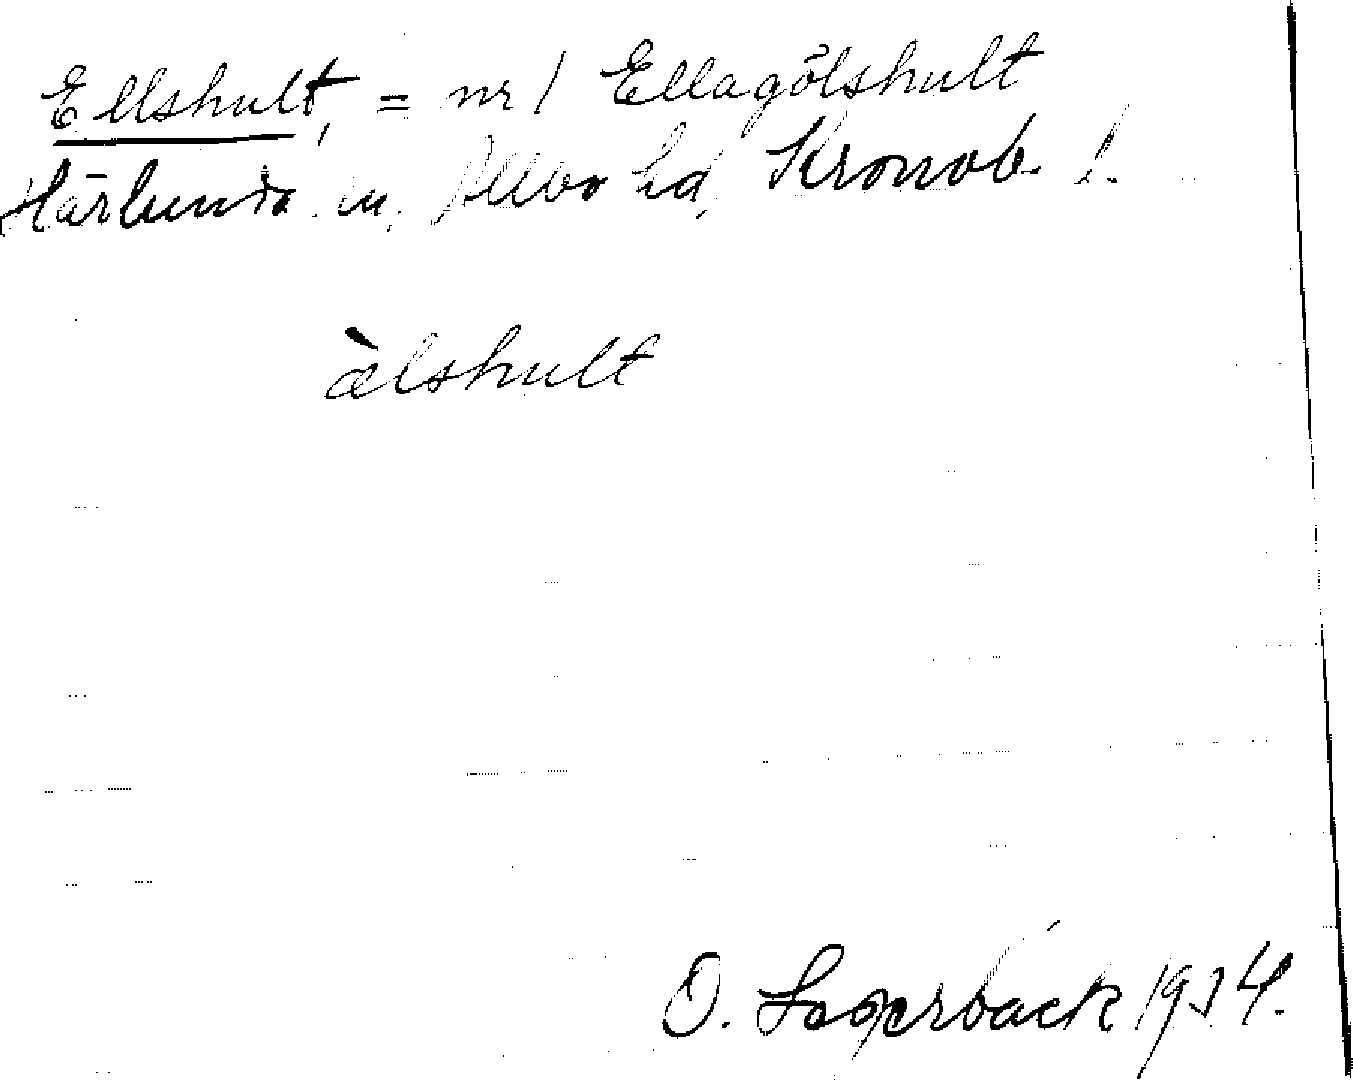 Ellshult, = nr 1 Ellagölshult
Härlunda sn, Allbo hd, Kronob. l.
æ̀lshult
O. Lagerbäck 1934.